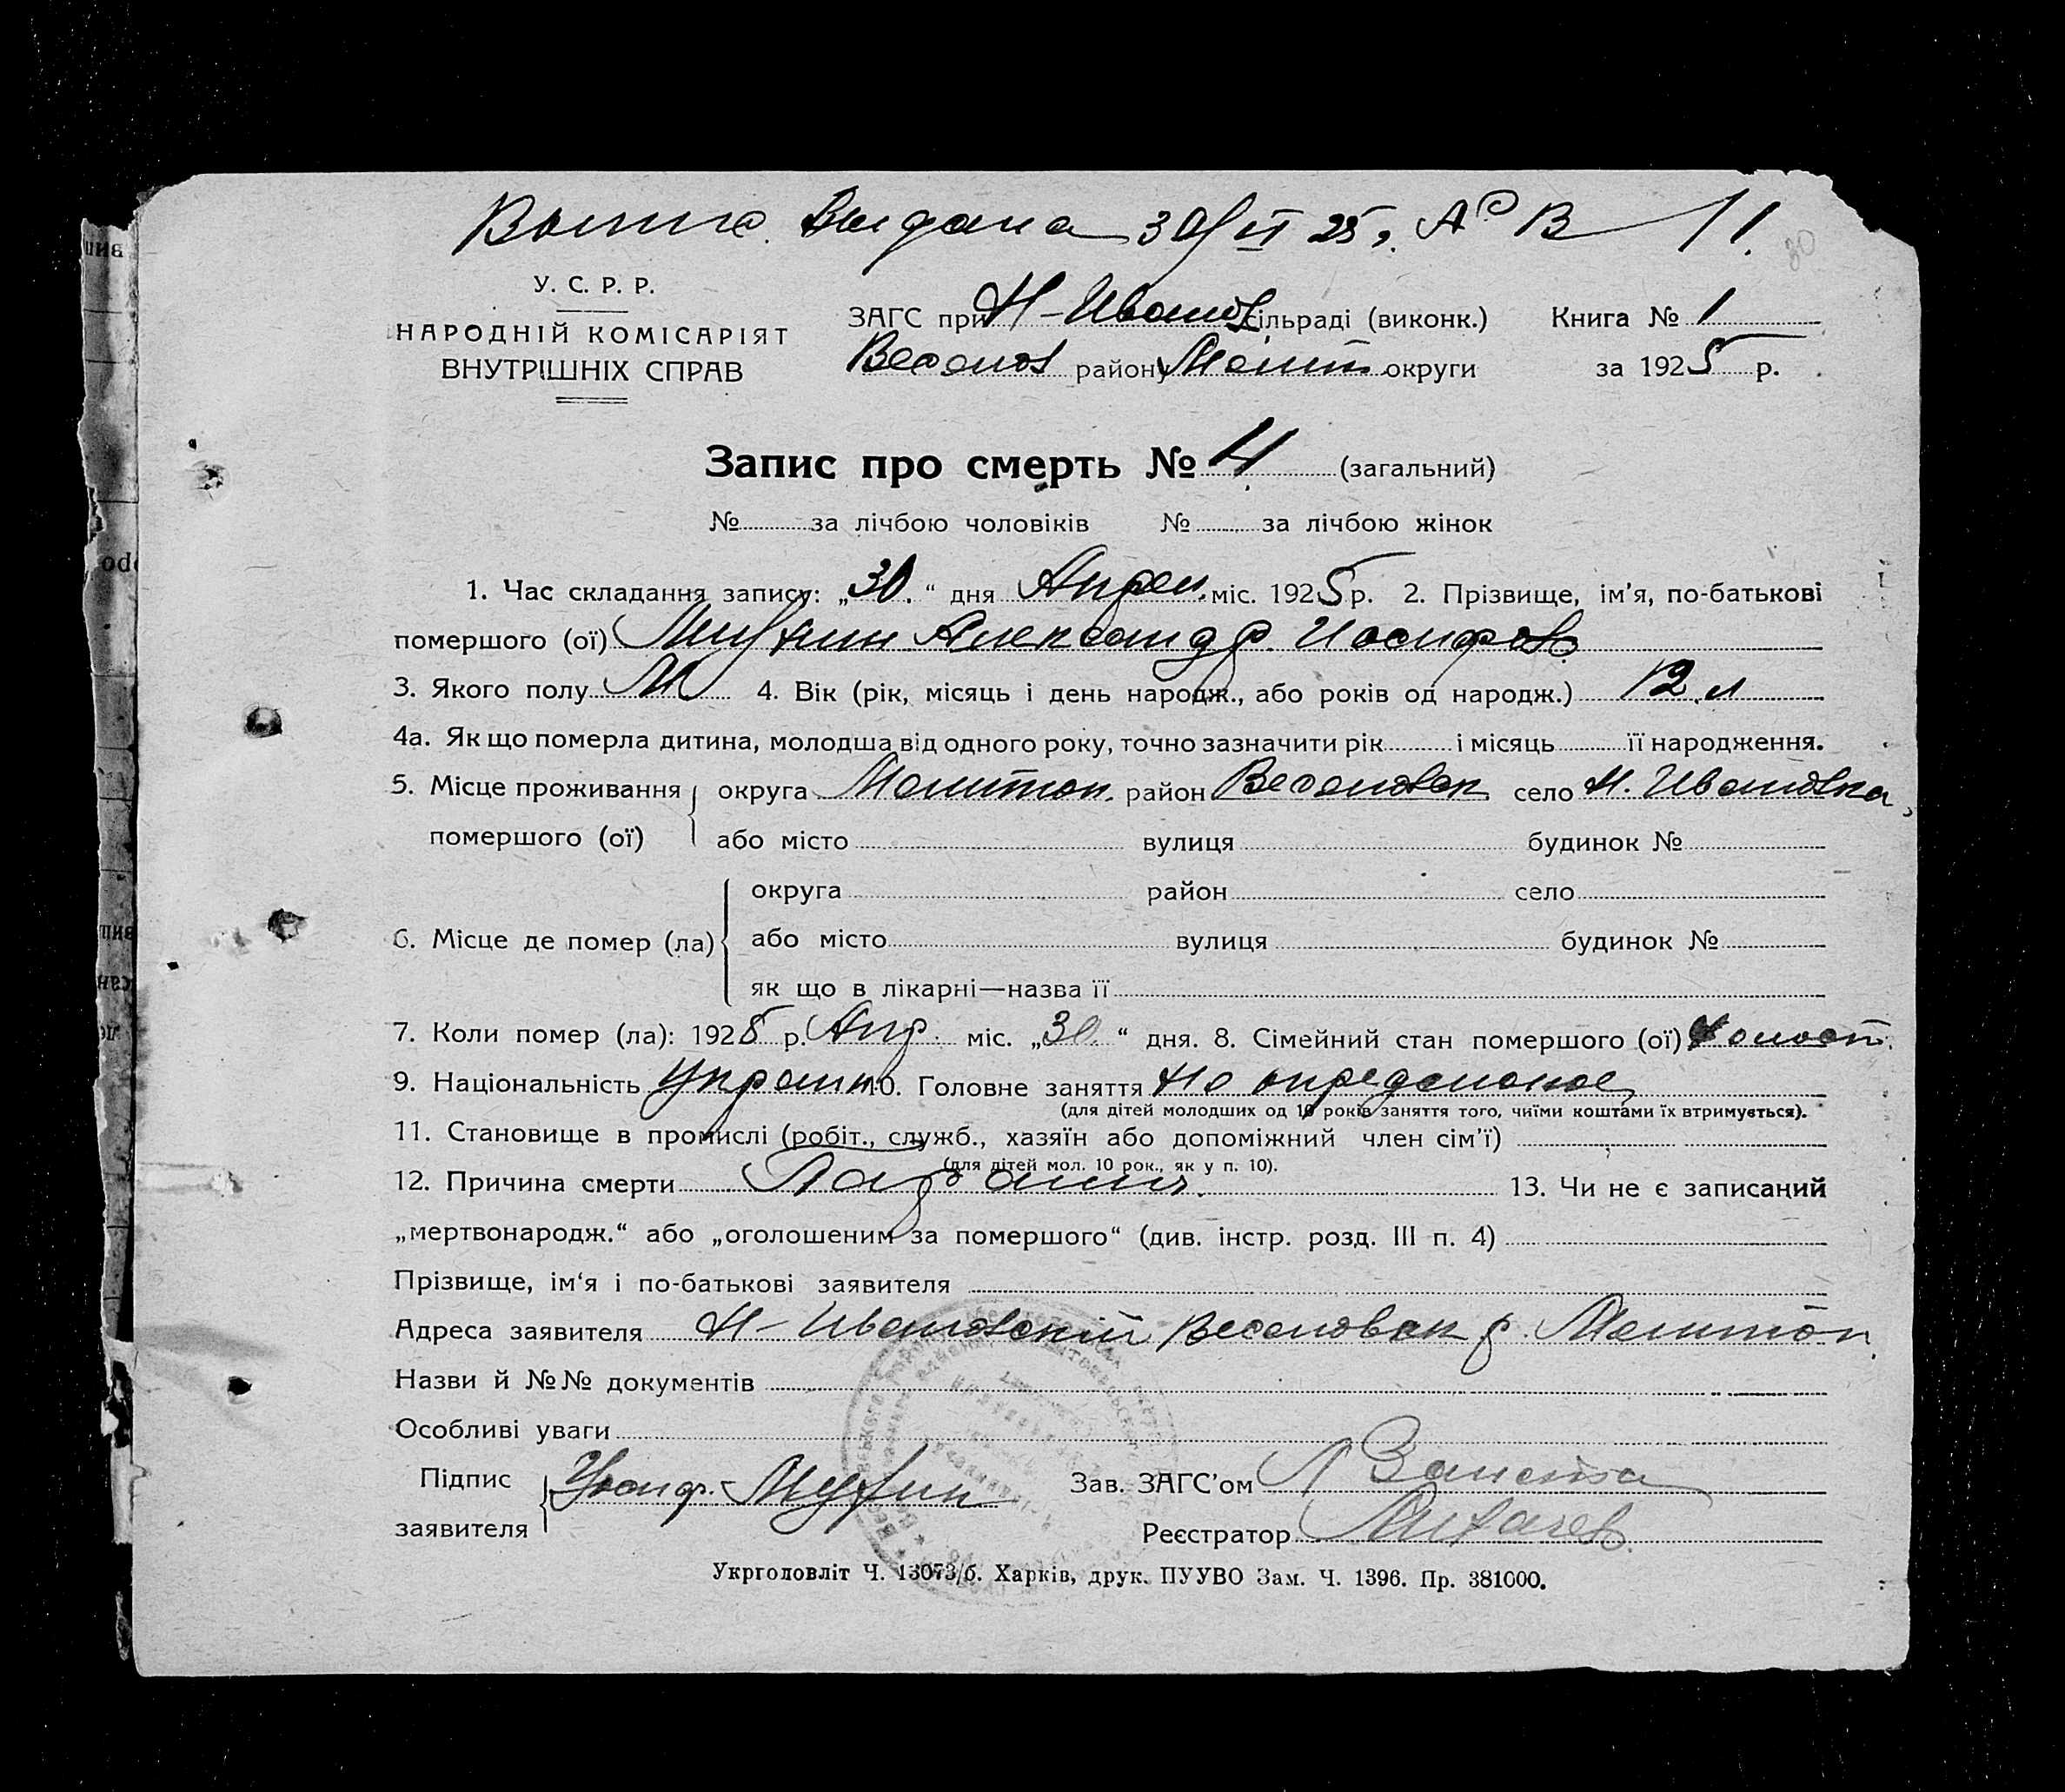 Выпис. Выдана 30/IV 25 г. А В 11.
У. С. Р. Р.
НАРОДНІЙ КОМІСАРІЯТ
ВНУТРІШНІХ СПРАВ
ЗАГС при Н-Иванов сільраді (виконк.)
Веселов району Мелит округи
Книга № 1
за 1925 р.
Запис про смерть № 4 (загальний)
№ за лічбою чоловіків № за лічбою жінок
1. Час складання запису: „30.“ дня Апрел. міс. 1925 р. 2. Прізвище, ім’я, по-батькові
помершого (ої) Александр Иосифов
3. Якого полу М 4. Вік (рік, місяць і день народж., або років од народж.) 12 л
4а. Як що померла дитина, молодша від одного року, точно зазначити рік і місяць її народження.
5. Місце проживання округа Мелитоп. район Веселовск село Н. Ивановка
помершого (ої) або місто вулиця будинок №
округа район село
6. Місце де помер (ла) або місто вулиця будинок №
як що в лікарні—назва її
7. Коли помер (ла): 1925 р. Апр. міс. „30.“ дня. 8. Сімейний стан помершого (ої) холост.
9. Національність Украин 10. Головне заняття Не определеное
(для дітей молодших од 10 років заняття того, чиїми коштами їх втримується).
11. Становище в промислі (робіт., служб., хазяїн або допоміжний член сім’ї)
(для дітей мол. 10 рок., як у п. 10).
12. Причина смерти 13. Чи не є записаний
„мертвонародж.“ або „оголошеним за помершого“ (див. інстр. розд. III п. 4)
Прізвище, ім‘я і по-батькові заявителя
Адреса заявителя Н-Ивановский Веселовск р. Мелитоп
Назви й №№ документів
Особливі уваги
Підпис
заявителя
Зав. ЗАГС’ом
Реєстратор Лихачев
Укрголовліт Ч. 13073/б. Харків, друк. ПУУВО Зам. Ч. 1396. Пр. 381000.